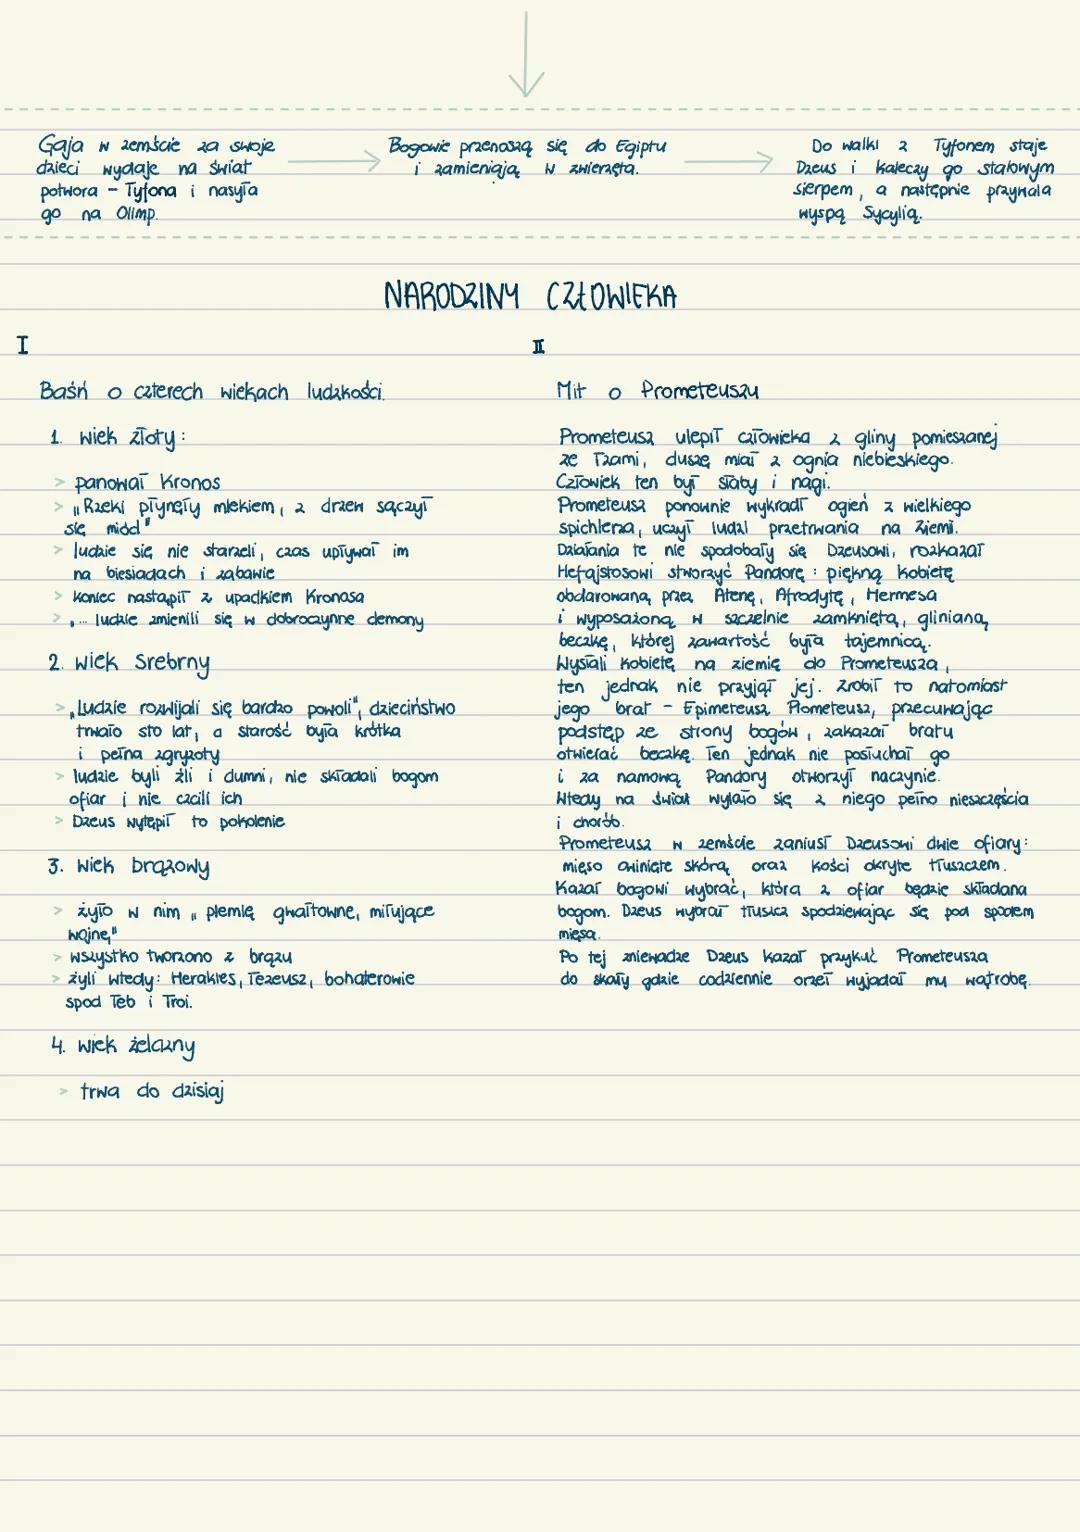 Gaja w zemście za swoje
dzieci wydaje na świat
potwora - Tyfona i nasyła
go na Olimp.
Bogowie przenoszą się do Egiptu
i zamieniają w zwierzęta.
Do walki z Tyfonem staje
Dzeus i kaleczy go stalowym
sierpem, a następnie przywala
wyspą Sycylią.
NARODZINY CZŁOWIEKA
I
Baśń o czterech wiekach ludzkości.
1. wiek złoty:
> panował Kronos
> „Rzeki płynęły mlekiem, z drzew sączył
się miód"
> ludzie się nie starzeli, czas upływał im
na biesiadach i zabawie
> koniec nastąpił z upadkiem Kronosa
> „... ludzie zmienili się w dobroczynne demony
2. wiek srebrny
> „Ludzie rozwijali się bardzo powoli", dzieciństwo
trwało sto lat, a starość była krótka
i pełna zgryzoty
> ludzie byli źli i dumni, nie składali bogom
ofiar i nie czcili ich
> Dzeus wytępił to pokolenie
3. wiek brązowy
> żyło w nim „plemię gwałtowne, miłujące
wojnę"
> wszystko tworzono z brązu
> żyli wtedy: Herakles, Tezeusz, bohaterowie
spod Teb i Troi.
4. wiek żelazny
> trwa do dzisiaj
II
Mit o Prometeuszu
Prometeusz ulepił człowieka z gliny pomieszanej
ze łzami, duszę miał z ognia niebieskiego.
Człowiek ten był słaby i nagi.
Prometeusz ponownie wykradł ogień z wielkiego
spichlerza, uczył ludzi przetrwania na Ziemi.
Działania te nie spodobały się Dzeusowi, rozkazał
Hefajstosowi stworzyć Pandorę: piękną kobietę
obdarowaną przez Atenę, Afrodytę, Hermesa
i wyposażoną w szczelnie zamkniętą, glinianą
beczkę, której zawartość była tajemnicą.
Wysłali kobietę na ziemię do Prometeusza,
ten jednak nie przyjął jej. Zrobił to natomiast
jego brat - Epimeteusz. Prometeusz, przeczuwając
podstęp ze strony bogów, zakazał bratu
otwierać beczkę. Ten jednak nie posłuchał go
i za namową Pandory otworzył naczynie.
Wtedy na świat wylało się z niego pełno nieszczęścia
i chorób.
Prometeusz w zemście zaniusł Dzeusowi dwie ofiary:
mięso owinięte skórą oraz kości okryte tłuszczem.
Kazał bogowi wybrać, która z ofiar będzie składana
bogom. Dzeus wybrał tłuszcz spodziewając się pod spodem
mięsa.
Po tej zniewadze Dzeus kazał przykuć Prometeusza
do skały gdzie codziennie orzeł wyjadał mu wątrobę.